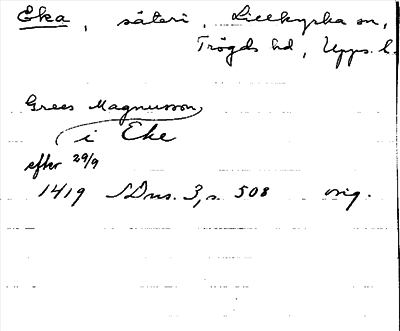 Eka, säteri, Lillkyrka sn,
Trögds hd, Upps. l.
Grees Magnusson
i Eke
efter 29/9
1419 SDns. 3, s. 508 orig.